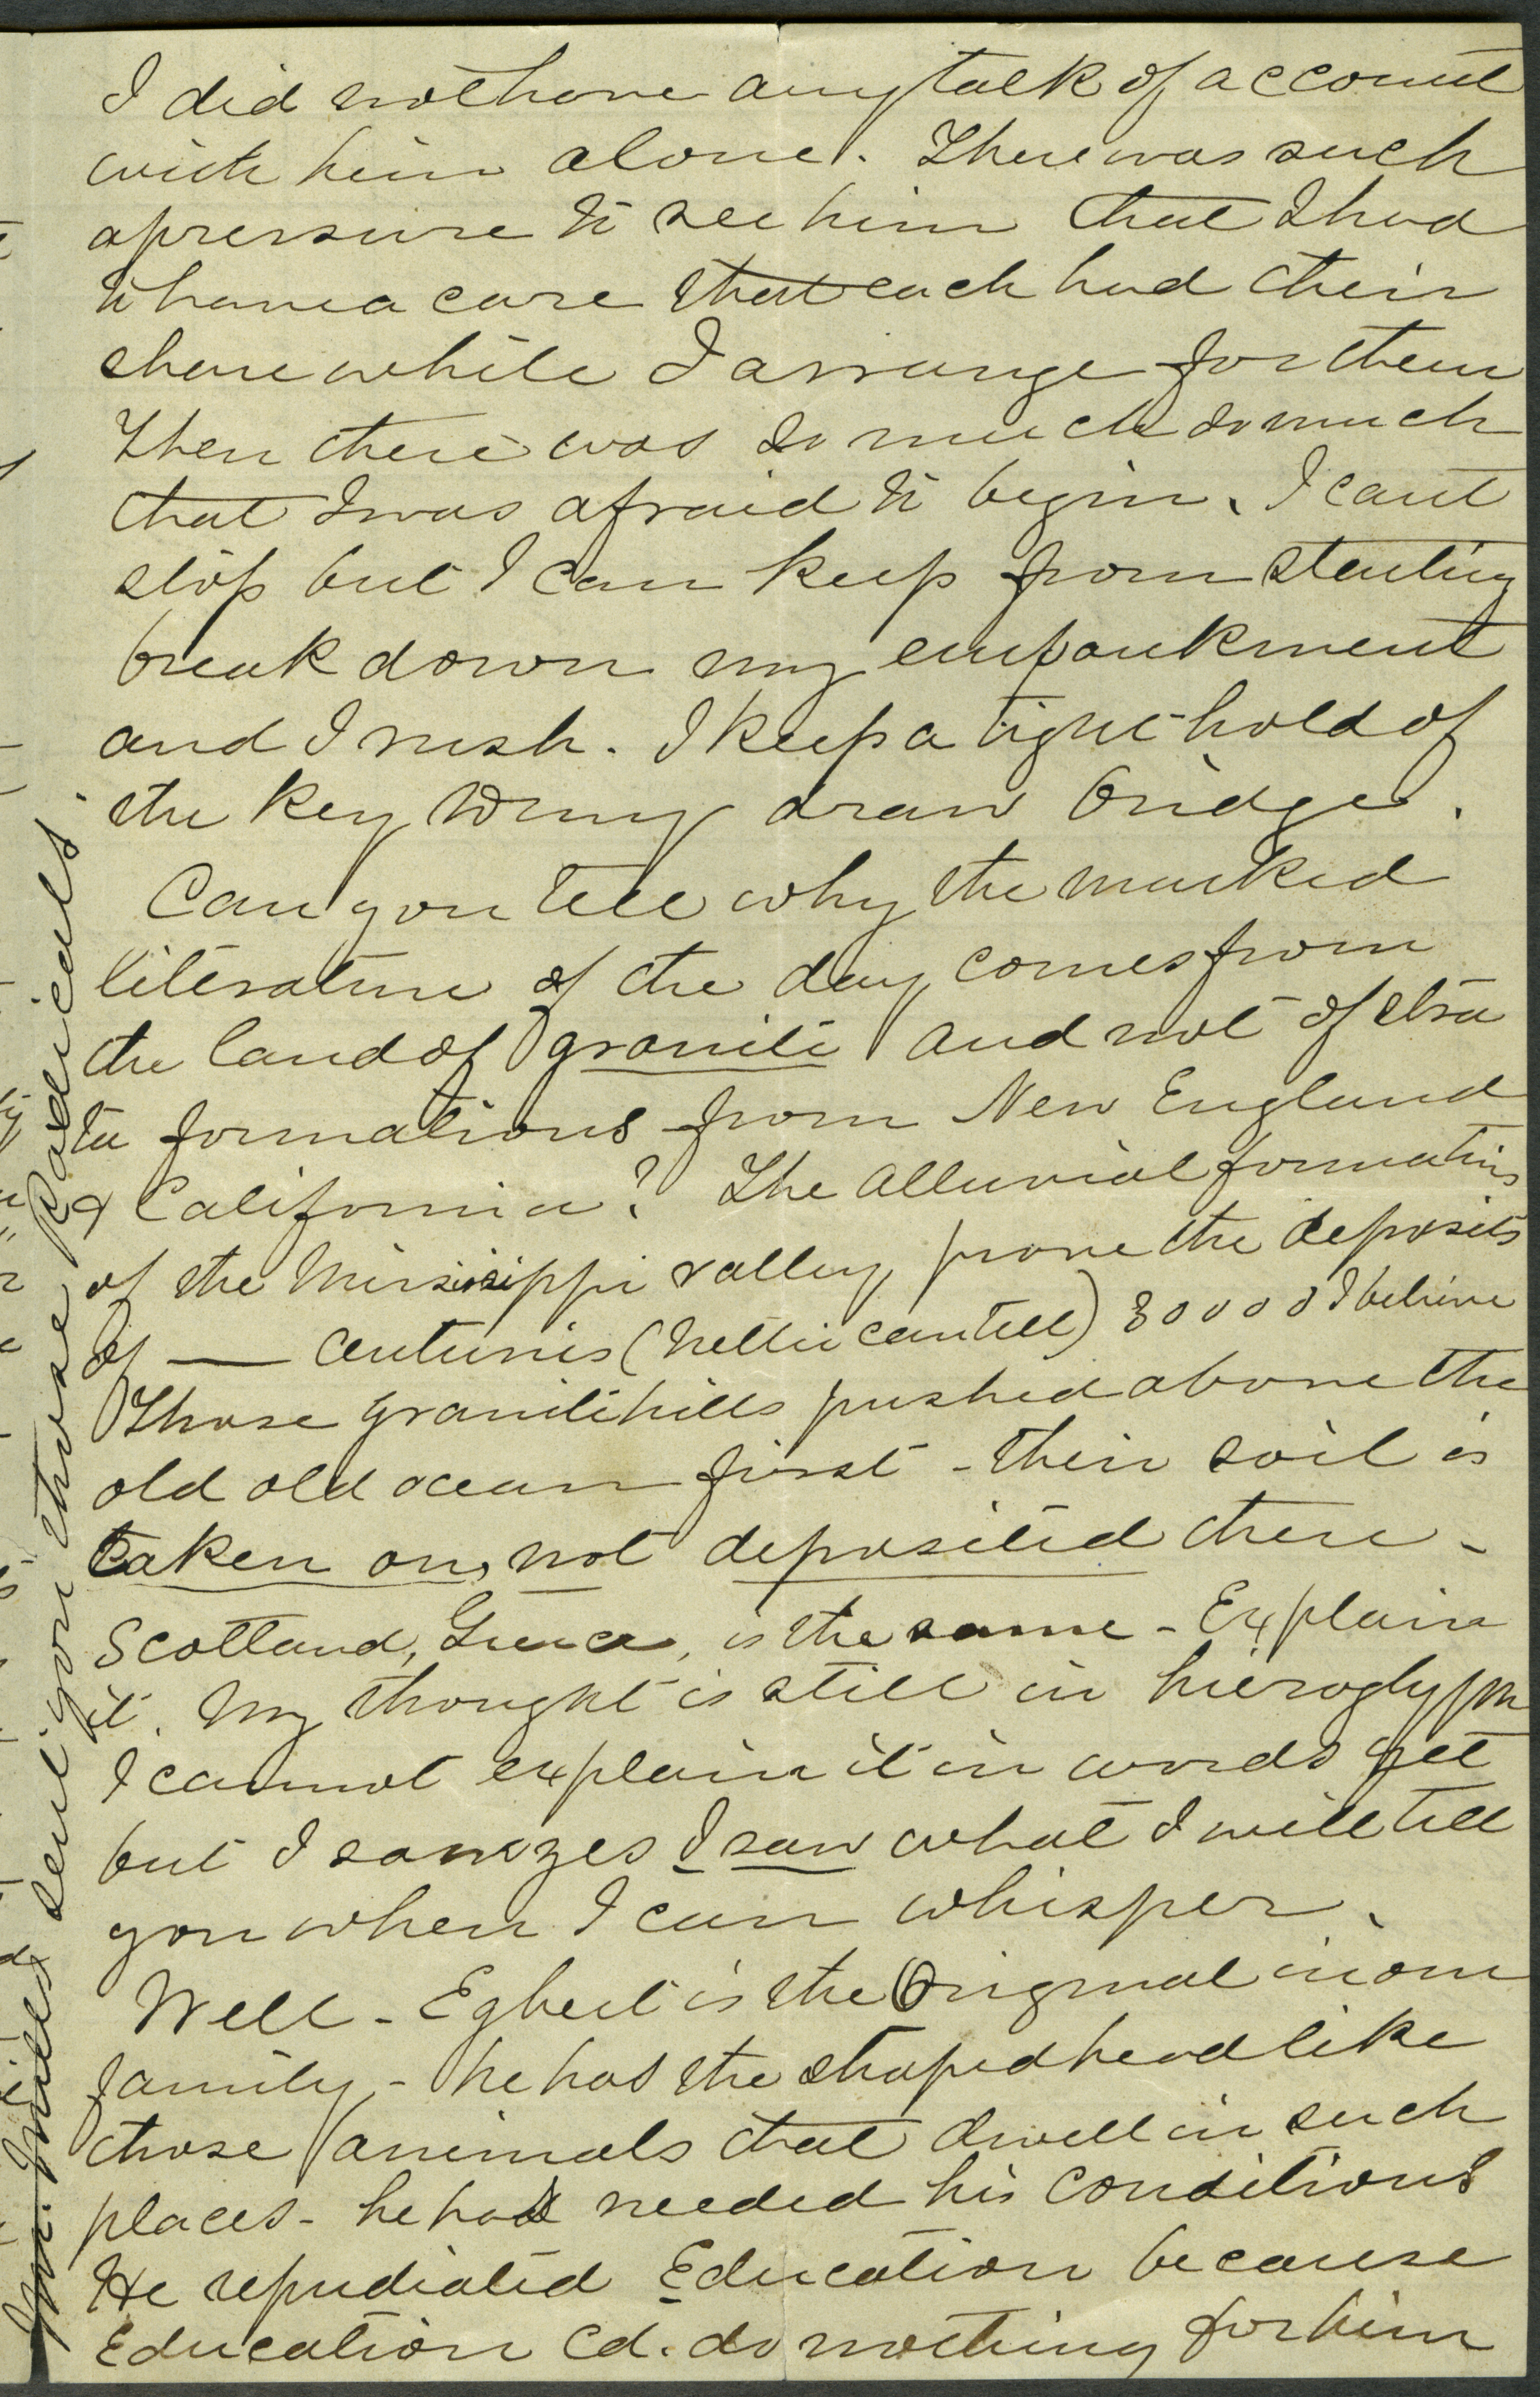 I did not have any talk of account
with him alone. There was such
a pressure to see him that I had
to have a care that each had their
share while I arrange for them
Then there was so much so much
that I was afraid to begin. I cant
stop but I can keep from starting
break down my empankment
and I rush. I keep a tight hold of
the key to my draw bridge.
Can you tell why the marked
literature of the day comes from
the land of granite and not of stra
ta formations from New England
& California? The alluvial formations
of the Missisippi valley, prove the deposits
of — centuries (Nellie can tell) 30000 I believe
Those granite hills pushed above the
old old ocean first - their soil is
taken on, not deposited there -
Scotland, Greece, is the same - Explain
it. My thought is still in hieroglyph
I cannot explain it in words yet
but I saw yes I saw what I will tell
you when I can whisper.
Well - Egbert is the Original in our
family, - he has the shaped head like
those animals that dwell in such
places - he has needed his conditions
He repudiated Education because
Education cd. do nothing for him
Mr. Mills sent you those Radicals.